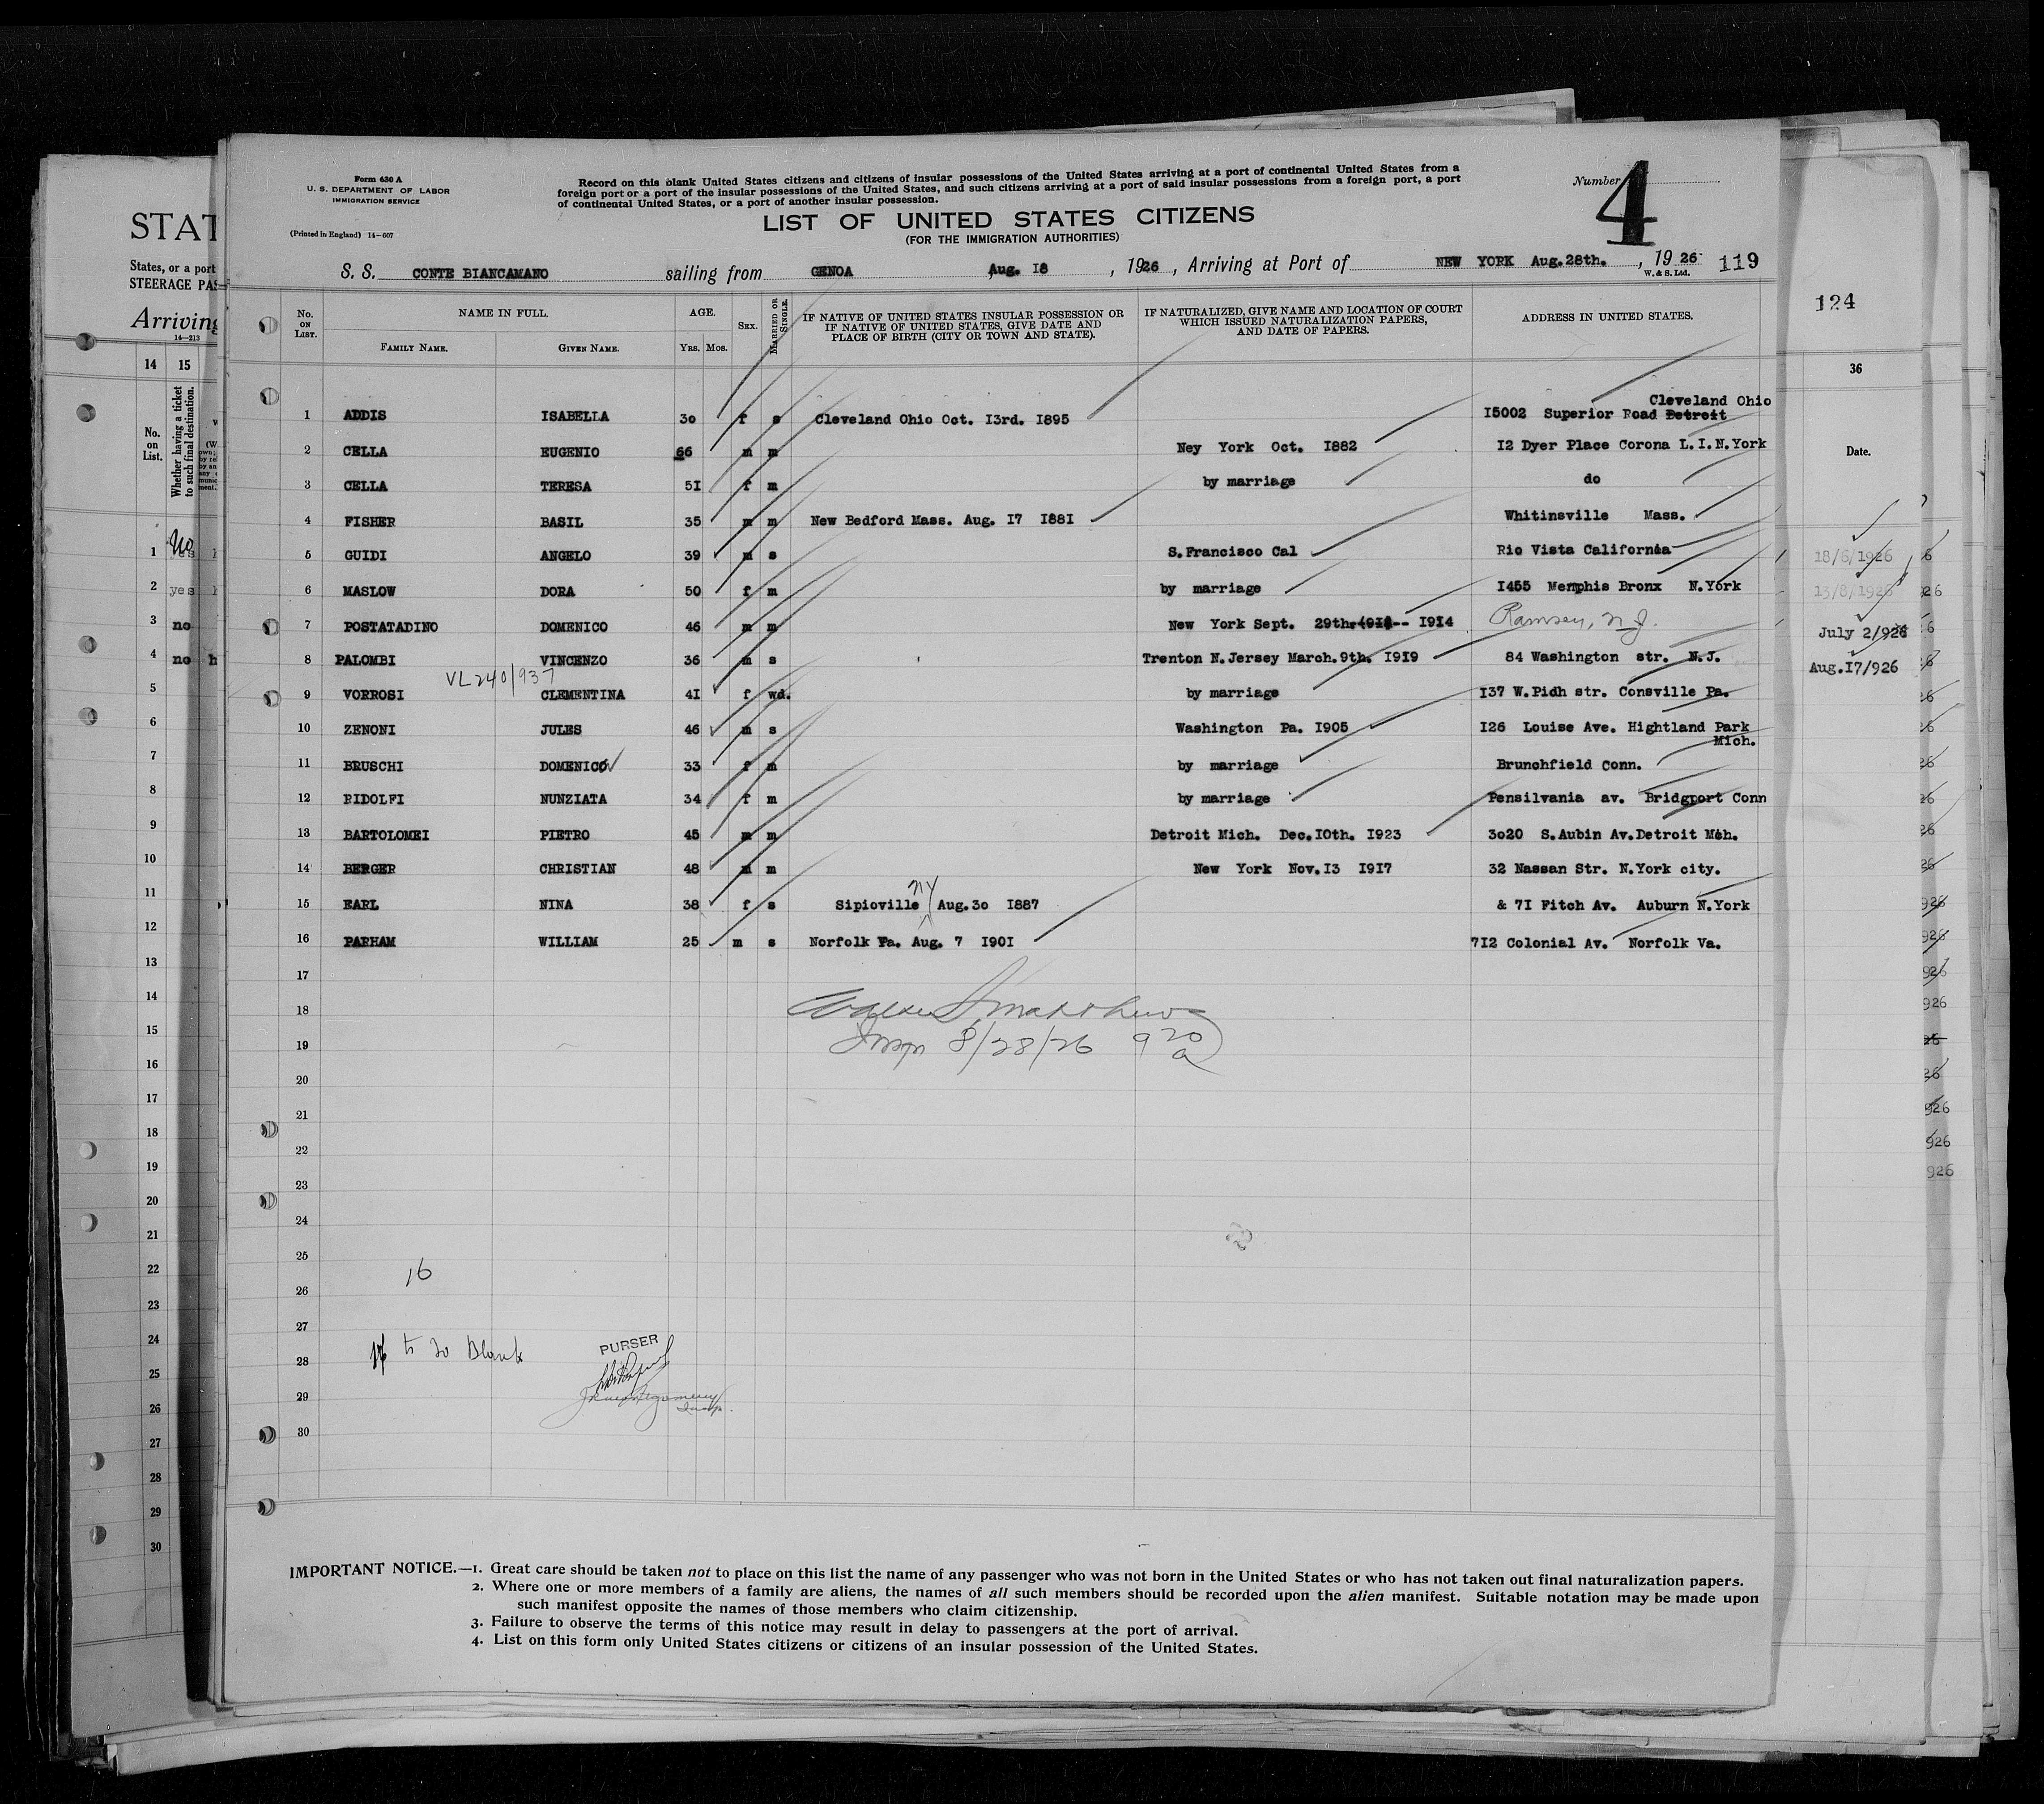 Form 630 A
U. S. DEPARTMENT OF LABOR
IMMIGRATION SERVICE
(Printed in England) 14—607
Record on this blank United States citizens and citizens of insular possessions of the United States arriving at a port of continental United States from a
foreign port or a port of the insular possessions of the United States, and such citizens arriving at a port of said insular possessions from a foreign port, a port
of continental United States, or a port of another insular possession.
Number 4
LIST OF UNITED STATES CITIZENS
(FOR THE IMMIGRATION AUTHORITIES)
S. S. CONTE BIANCAMANO sailing from GENOA Aug. I8, 1926, Arriving at Port of NEW YORK Aug.28th., 19 26 119
W. & S. Ltd.
No. on List. NAME IN FULL. AGE. SEX. MARRIED OR SINGLE. IF NATIVE OF UNITED STATES INSULAR POSSESSION OR IF NATIVE OF UNITED STATES, GIVE DATE AND PLACE OF BIRTH (CITY OR TOWN AND STATE). IF NATURALIZED, GIVE NAME AND LOCATION OF COURT WHICH ISSUED NATURALIZATION PAPERS, AND DATE OF PAPERS. ADDRESS IN UNITED STATES.
FAMILY NAME. GIVEN NAME. YRS. MOS.
Cleveland Ohio
1 ADDIS ISABELLA 30 f s Cleveland Ohio Oct. I3rd. I895 I5002 Superior Road Detroit
2 CELLA EUGENIO 66 m m Ney York Oct. I882 I2 Dyer Place Corona L.I.N.York
3 CELLA TERESA 5I f m by marriage do
4 FISHER BASIL 35 m m New Bedford Mass. Aug. I7 I88I Whitinsville Mass.
5 GUIDI ANGELO 39 m s S.Francisco Cal Rio Vista California
6 MASLOW DORA 50 f m by marriage I455 Memphis Bronx N.York
7 POSTATADINO DOMENICO 46 m m New York Sept. 29th. I9I4 Ramsey, N.J.
8 PALOMBI VINCENZO 36 m s Trenton N.Jersey March.9th. I9I9 84 Washington str. N.J.
VL 240/937
9 VORROSI CLEMENTINA 4I f wd. by marriage I37 W.Pidh str. Consville Pa.
10 ZENONI JULES 46 m s Washington Pa. I905 I26 Louise Ave. Hightland Park
Mich.
11 BRUSCHI DOMENICO 33 f m by marriage Brunchfield Conn.
12 RIDOLFI NUNZIATA 34 f m by marriage Pensilvania av. Bridgport Conn
13 BARTOLOMEI PIETRO 45 m m Detroit Mich. Dec.I0th. I923 3020 S.Aubin Av.Detroit Mch.
14 BERGER CHRISTIAN 48 m m New York Nov.I3 I9I7 32 Nassan Str. N.York city.
15 EARL NINA 38 f s Sipioville NY Aug.30 I887 & 7I Fitch Av. Auburn N.York
16 PARHAM WILLIAM 25 m s Norfolk Va. Aug. 7 I90I 7I2 Colonial Av. Norfolk Va.
17
18 Matthews
19 Insp 8/28/26 9 20 a
20
21
22
23
24
25
16
26
27
PURSER
28 17 to 30 Blank
29
Insp.
30
IMPORTANT NOTICE.—1. Great care should be taken not to place on this list the name of any passenger who was not born in the United States or who has not taken out final naturalization papers.
2. Where one or more members of a family are aliens, the names of all such members should be recorded upon the alien manifest. Suitable notation may be made upon
such manifest opposite the names of those members who claim citizenship.
3. Failure to observe the terms of this notice may result in delay to passengers at the port of arrival.
4. List on this form only United States citizens or citizens of an insular possession of the United States.
STAT
States, or a port
STEERAGE PAS
Arriving
14—213
14 15
No. on List.
Whether having a ticket to such final destination.
1 No
2 yes
3 no
4 no
5
6
7
8
9
10
11
12
13
14
15
16
17
18
19
20
21
22
23
24
25
26
27
28
29
30
124
36
Date.
18/6/1926
13/8/1926
July 2/926
Aug.I7/926